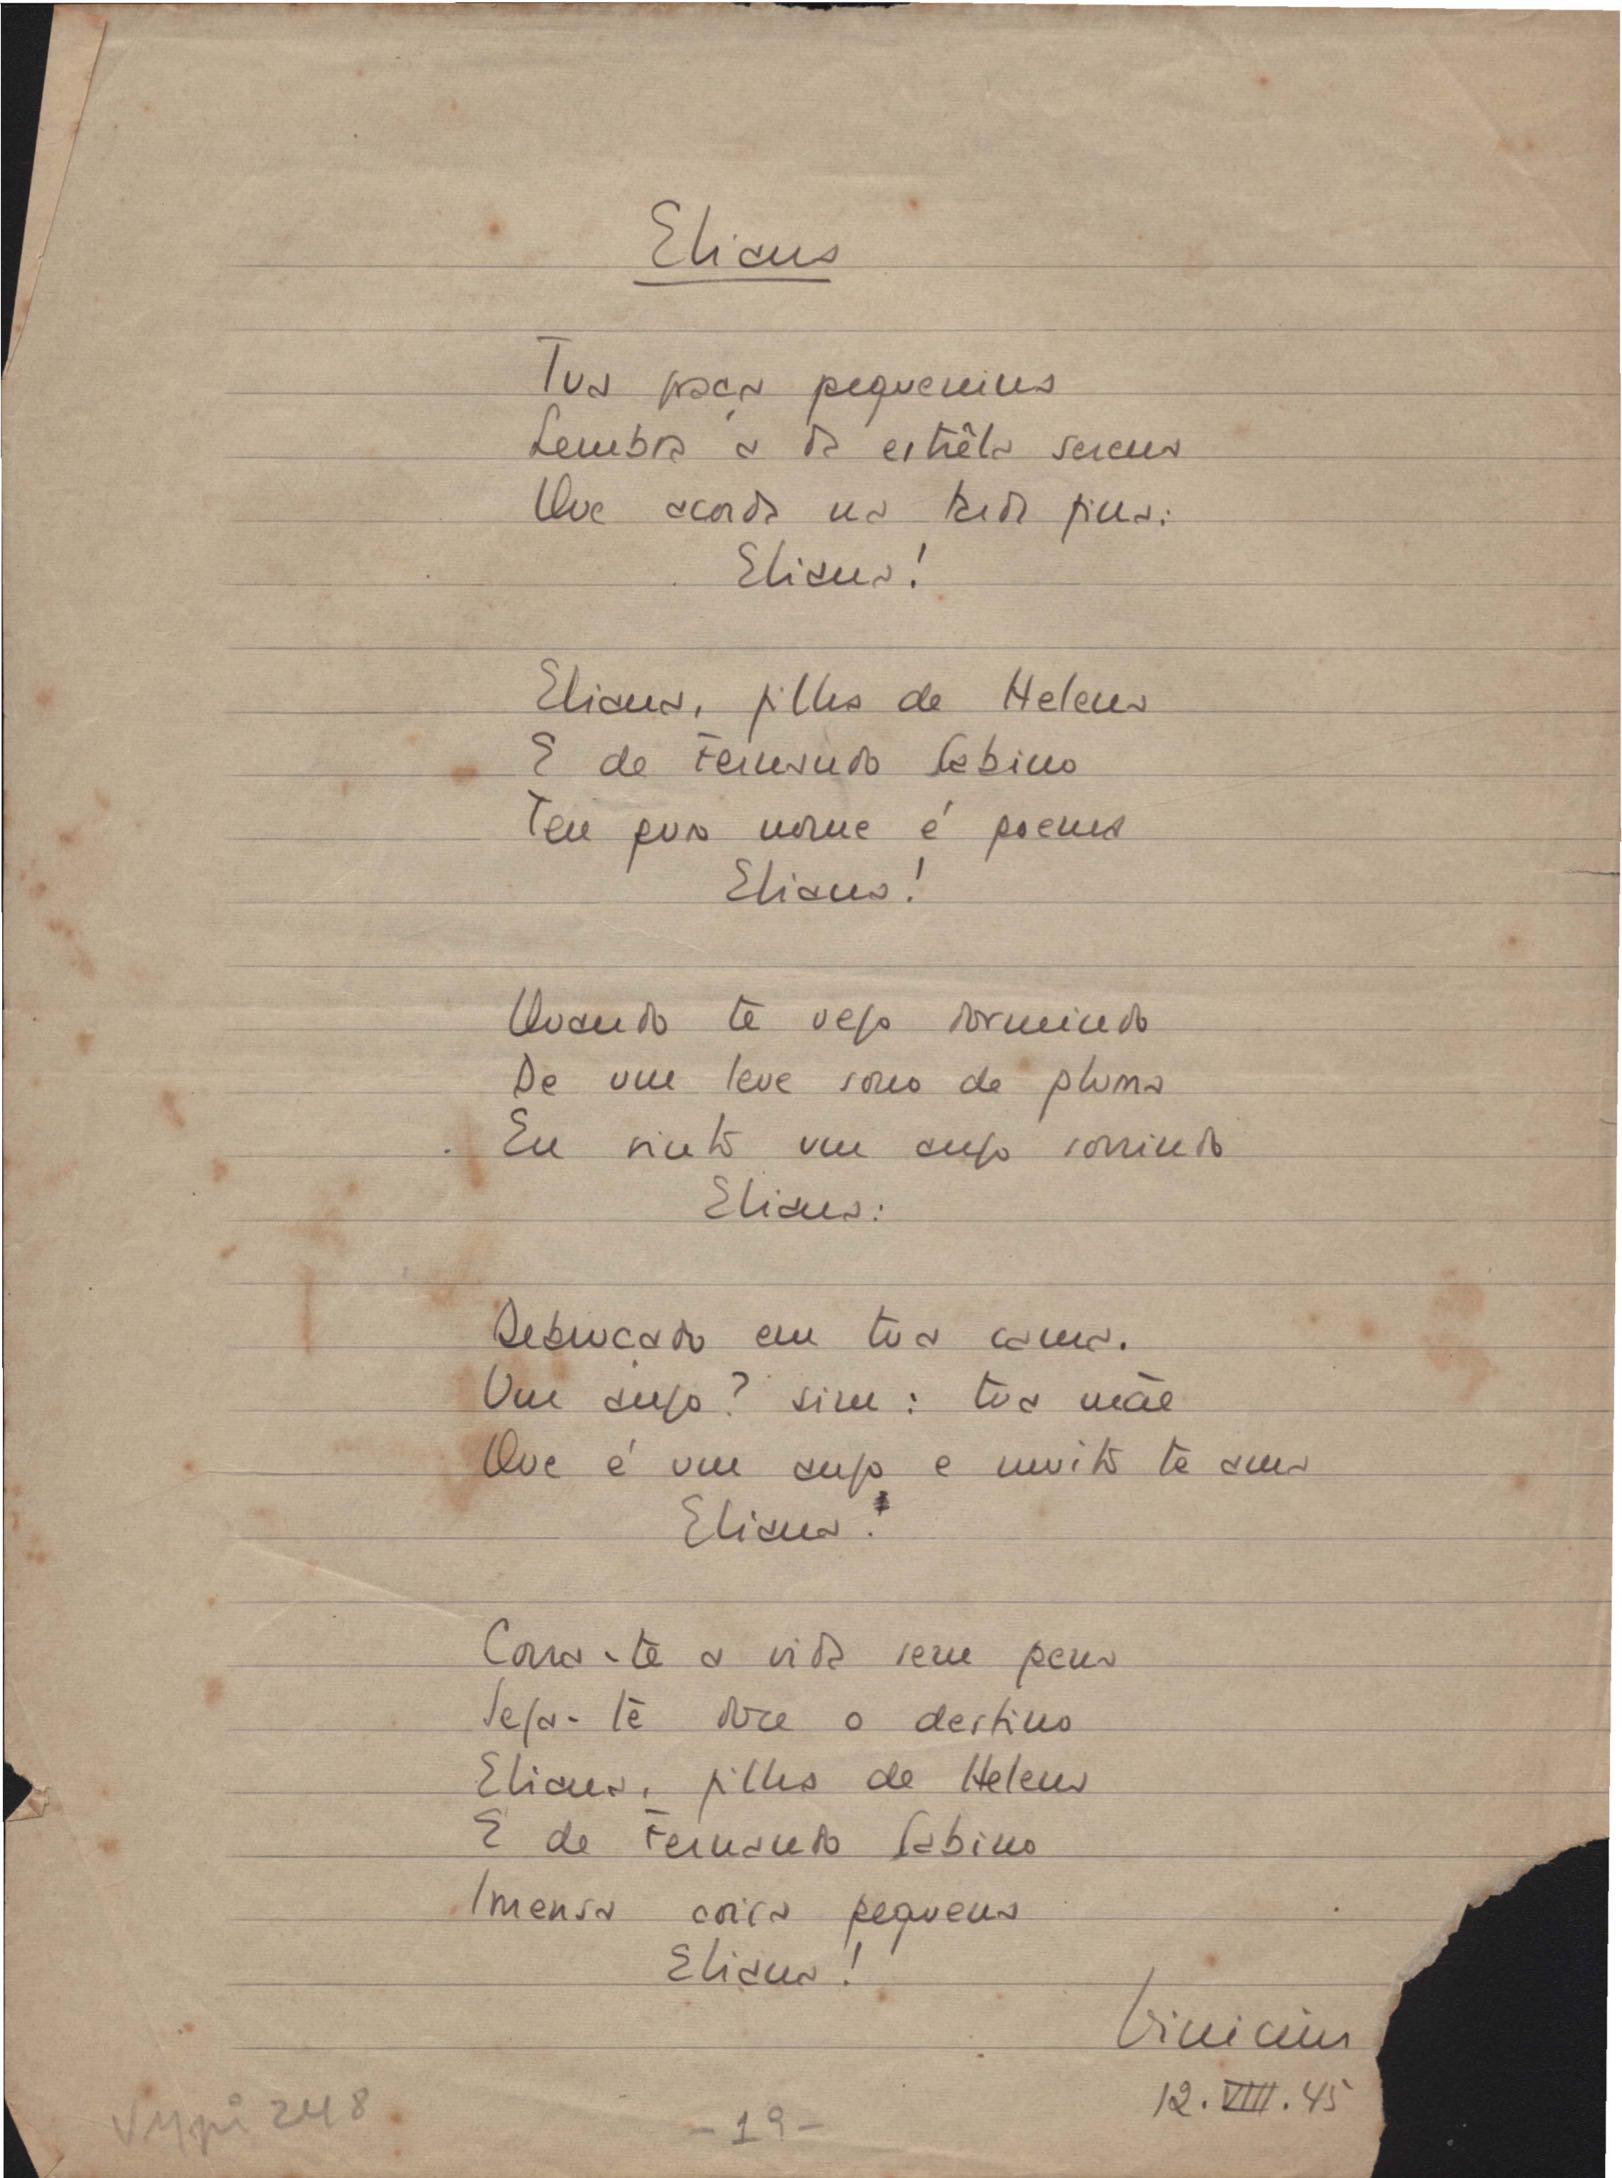 Eliana
Tua graça pequenina
Lembra a da estrêla serena
Que acorda na tarde fina:
Eliana!
Eliana, filha de Helena
E de Fernando Sabino
Teu puro nome é poema
Eliana!
Quando te vejo dormindo
De um leve sono de pluma
Eu sinto um anjo sorrindo
Eliana:
Debruçado em tua cama.
Um anjo? sim: tua mãe
Que é um anjo e muito te ama
Eliana!
Corra-te a vida sem pena
Seja-te doce o destino
Eliana, filha de Helena
E de Fernando Sabino
Imensa coisa pequena
Eliana!
Vinicius
12.VIII.45
Vypi 248
-19-